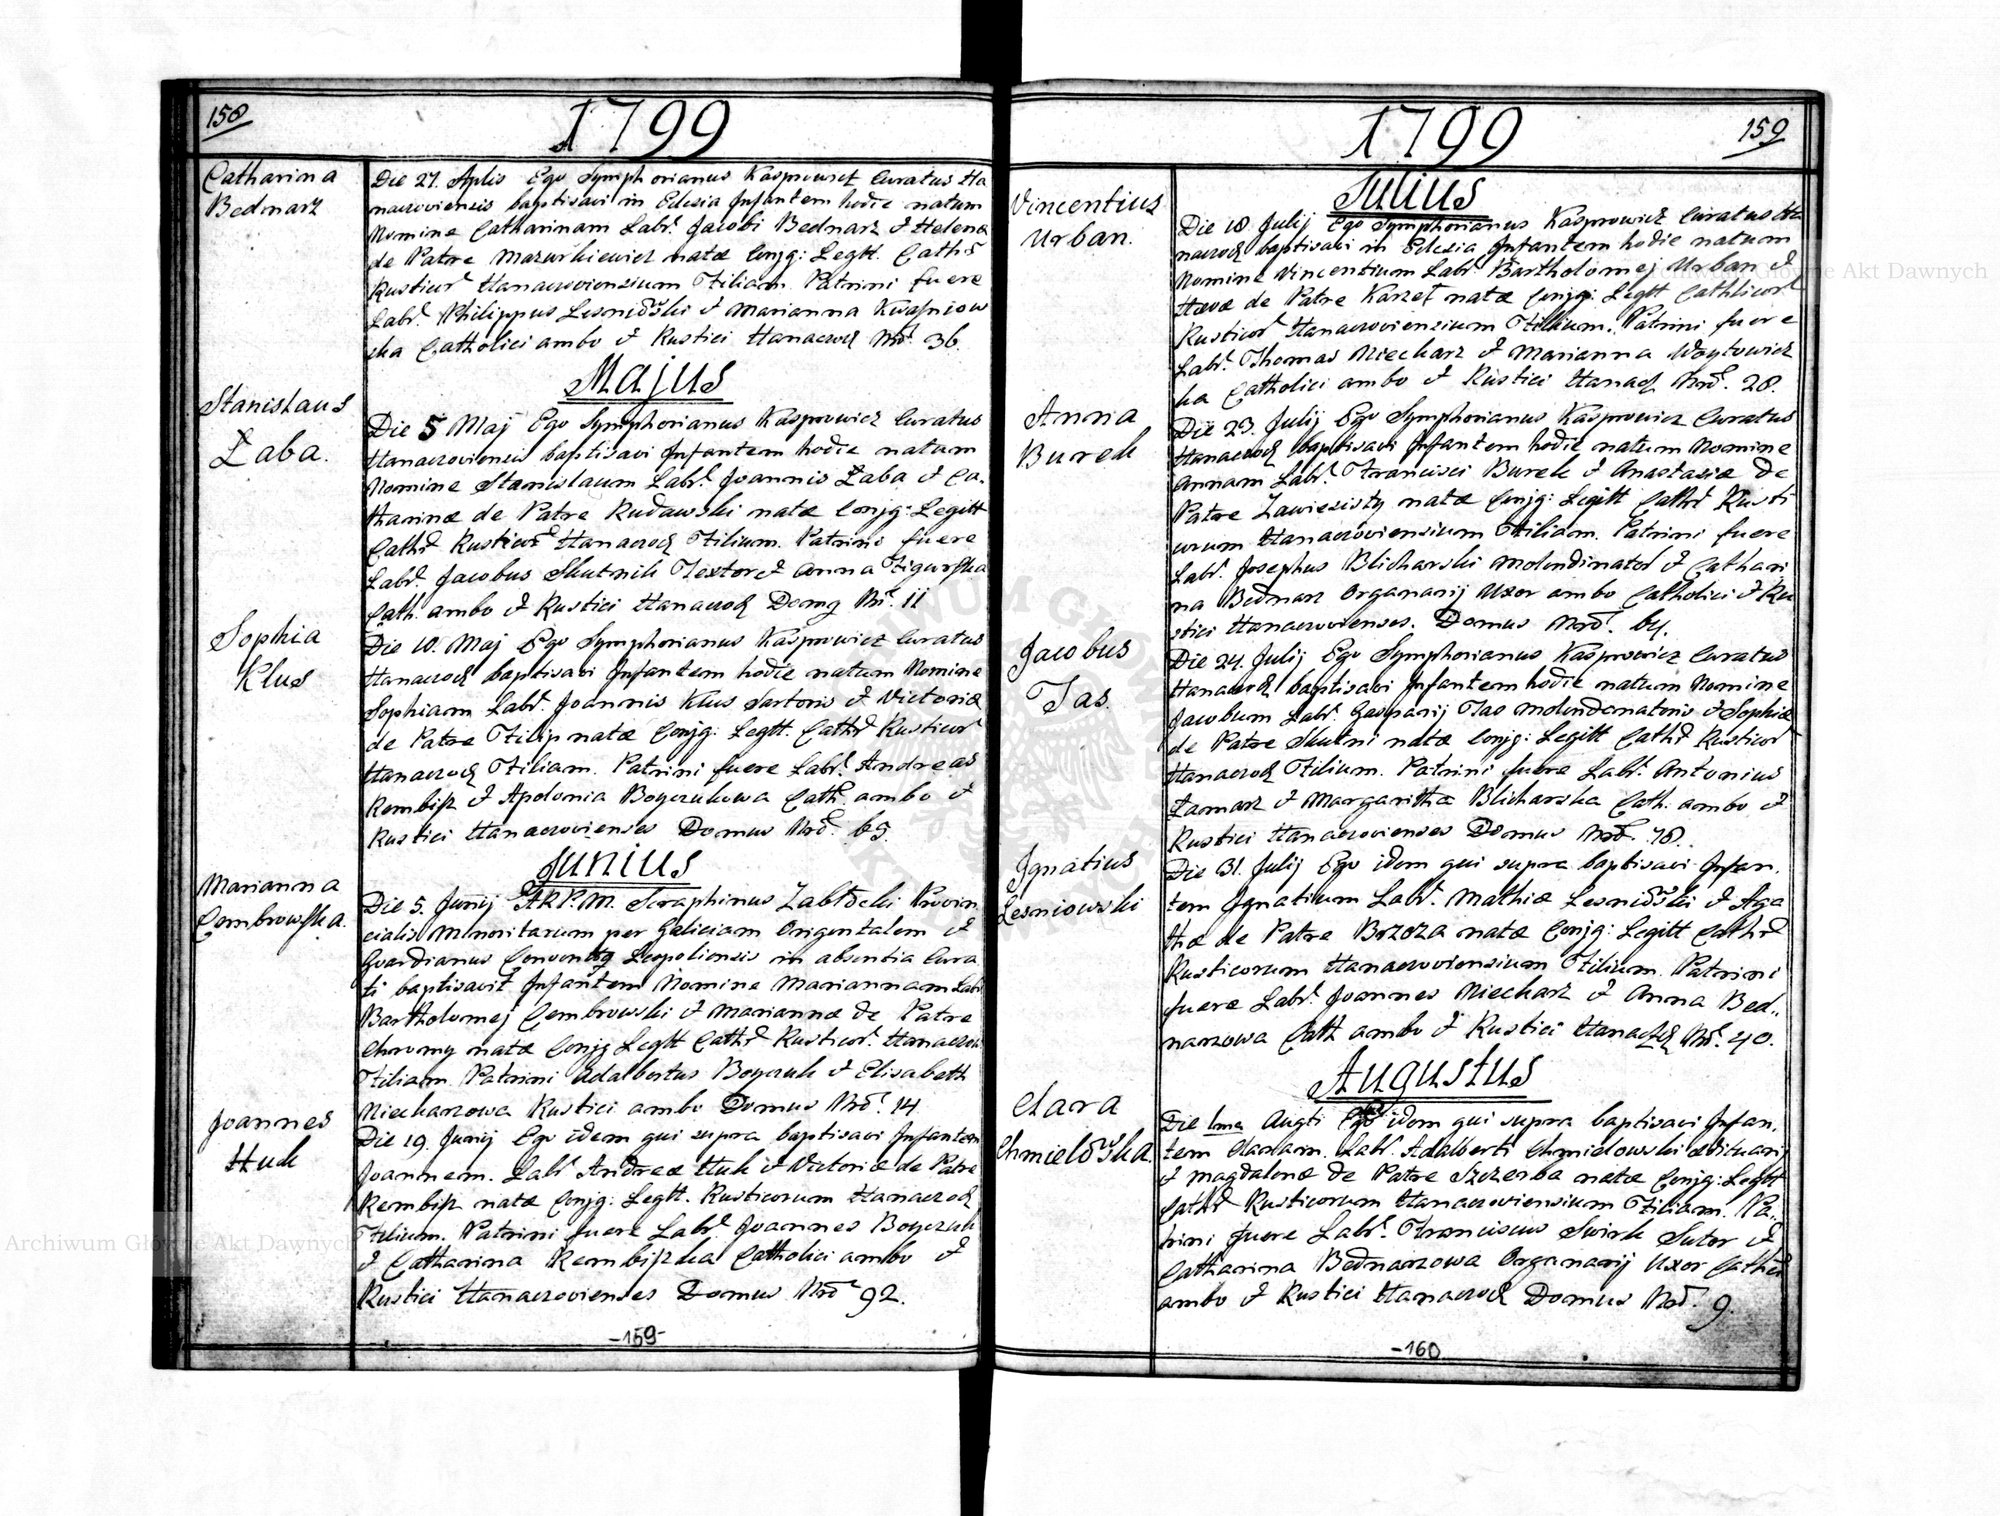 158
1799
Catharina
Bednarz
Die 27. Aplis Ego Symphorianus Kasprowicz Curatus Ha
naczoviensis baptisavi in Eclesia Infantem hodie natum
Nomine Catharinam Labr. Jacobi Bednarz & Helenæ
de Patre Mazurkiewicz natæ Conjg: Legtt. Cathr
Rusticor Hanaczoviensium Filiam. Patrini fuere
Labr. Philippus Lesniowski & Marianna Kwasniow
ska Catholici ambo & Rustici Hanaczov Nro. 36.
Majus
Stanislaus
Zaba.
Die 5 Maj Ego Symphorianus Kasprowicz Curatus
Hanaczoviensis baptisavi Infantem hodie natum
Nomine Stanislaum Labr. Joannis Zaba & Ca-
tharinæ de Patre Rudawski natæ Conjg: Legitt
Cathr Rusticor Hanaczov Filium. Patrini fuere
Labr. Jacobus Skutnik Textor & Anna Figurska
Cath. ambo & Rustici Hanaczov Domg Nr. 11
Sophia
Klus
Die 10. Maj Ego Symphorianus Kasprowicz Curatus
Hanaczov baptisavi Infantem hodie natum Nomine
Sophiam Labr. Joannis Klus Sartoris & Victoriæ
de Patre Filip natæ Conjg: Legtt. Cathr Rusticor
Hanaczov Filiam. Patrini fuere Labr. Andreas
Rembisz & Apolonia Boyczukowa Cath. ambo &
Rustici Hanaczovienses Domus Nro. 65.
Junius
Marianna
Cembrowska.
Die 5. Junij ARP.M. Seraphinus Zabłocki Provin
cialis Minoritarum per Galiciam Origentalem &
Guardianus Conventg Leopoliensis in absentia Cura
ti baptisavit Infantem Nomine Mariannam Labr
Bartholomej Cembrowski & Mariannæ de Patre
Chromy natæ Conjg Legtt Cathr Rusticor. Hanaczov
Filiam. Patrini Adalbertus Boyczuk & Elisabeth
Niecharzowa Rustici ambo Domus Nro. 14
Joannes
Huk
Die 19. Junij Ego idem qui supra baptisavi Infantem
Joannem. Labr Andreæ Huk & Victoriæ de Patre
Rembisz natæ Conjg: Legtt. Rusticorum Hanaczov
Filium. Patrini fuere Labr. Joannes Boyczuk
& Catharina Rembiszka Catholici ambo &
Rustici Hanaczovienses Domus Nro 92.
-159-
159
1799
Julius
Vincentius
Urban.
Die 18. Julij Ego Symphorianus Kasprowicz Curatus Ha
naczov baptisavi in Eclesia Infantem hodie natum
Nomine Vincentium Labr. Bartholomej Urban &
Hevæ de Patre Karzet natæ Conjg: Legtt Cathlicor
Rusticor Hanaczoviensium Filium. Patrini fuere
Labr. Thomas Niecharz & Marianna Woytowicz
ka Catholici ambo & Rustici Hanacz Nro. 28.
Anna
Burek
Die 23. Julij Ego Symphorianus Kasprowicz Curatus
Hanaczov baptisavi Infantem hodie natum Nomine
Annam Labr. Francisci Burek & Anastasiæ de
Patre Zawiezisty natæ Conjg: Legitt Cathr Rusti
corum Hanaczoviensium Filiam. Patrini fuere
Labr. Josephus Blicharski Molendinator & Cathari
na Bednarz Organarij Uxor ambo Catholici & Ru
stici Hanaczovienses. Domus Nro. 64.
Jacobus
Tas.
Die 24. Julij Ego Symphorianus Kasprowicz Curatus
Hanaczov baptisavi Infantem hodie natum Nomine
Jacobum Labr. Gasparij Tas Molendenatoris & Sophiæ
de Patre Skutni natæ Conjg: Legitt Cathr Rusticor
Hanaczov Filium. Patrini fuere Labr. Antonius
Lamarz & Margaritha Blicharska Cath. ambo &
Rustici Hanaczovienses Domus Nro. 78.
Ignatius
Lesniowski
Die 31. Julij Ego idem qui supra baptisavi Infan.
tem Ignatium Labr. Mathiæ Lesniowski & Aga
thæ de Patre Brzoza natæ Conjg: Legitt Cathr
Rusticorum Hanaczoviensium Filium. Patrini
fuere Labr. Joannes Niecharz & Anna Bed„
narzowa Cath ambo & Rustici Hanaczov Nr. 40.
Augustus
Clara
Chmielowska.
Die 1ma Augti Ego idem qui supra baptisavi Infan.
tem Claram. Labr. Adalberti Chmielowski
& Magdalenæ de Patre Szczerba natæ Conjg: Legtt
Cathr Rusticorum Hanaczoviensium Filiam. Pa„
trini fuere Labr. Franciscus Swirk Sutor &
Catharina Bednarzowa Organarij Uxor Cathci
ambo & Rustici Hanaczov Domus Nro. 9.
-160
Archiwum Główne Akt Dawnych
Archiwum Główne Akt Dawnych